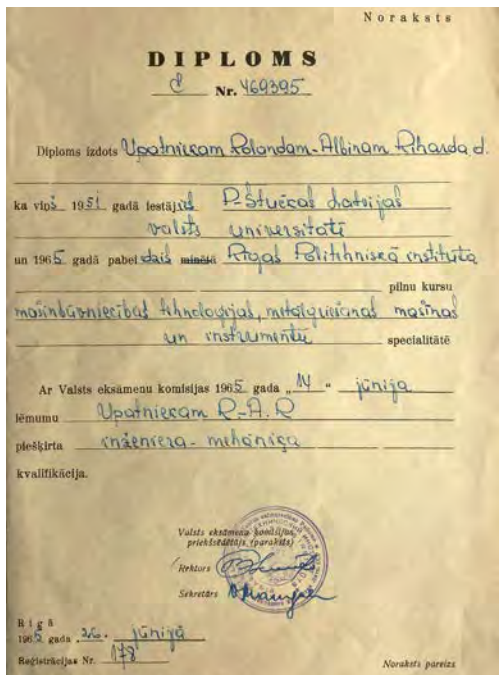 Noraksts
DIPLOMS
Nr. 469395
Diploms izdots Upatniekam Rolandam-Albinam Riharda d.
ka viņš 1951 gadā iestāj P. Stučkas Latvijas
valsts universitātē
un 1965 gadā pabei dzis minētā Rīgas Politehniskā institūta
pilnu kursu
mašinbūvniecības tehnoloģijas, metālgriešanas mašīnas
un instrumentu specialitātē
Ar Valsts eksāmenu komisijas 1965 gada „14“ jūnija
lēmumu Upatniekam R-A. R
piešķirta inženiera-mehāniķa
kvalifikācija.
Valsts eksāmenu komisijas
priekšsēdētājs (paraksts)
Rektors
Sekretārs
Rīgā
1965 gada 26. jūnijā
Reģistrācijas Nr. 178
Noraksts pareizs